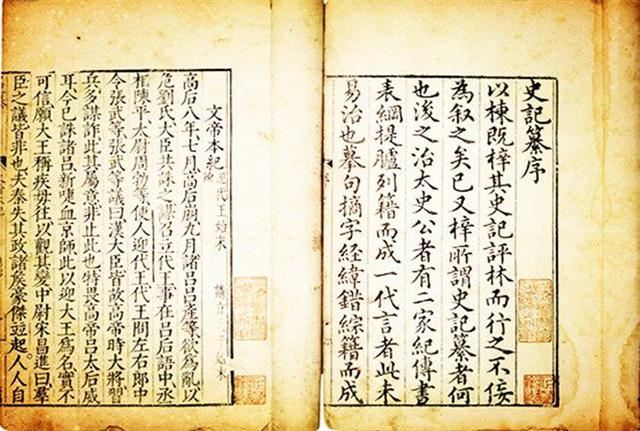 史記纂序
以棟既梓其史記評林而行之不佞
為叙之矣已又梓所謂史記纂者何
也後之治太史公者有二家紀傳書
表綱提臚列籍而成一代言者此未
易治也摹句摘字経緯錯綜籍而成
文帝本紀 代王始末
高后八年七月高后崩九月諸呂呂產等欲為亂以
危劉氏大臣共誅之謀召立代王事在呂后語中丞
相陳平太尉周勃等使人迎代王代王問左右郎中
令張武等張武等議曰漢大臣皆故高帝時大將習
兵多謀詐此其屬意非止此也特畏高帝呂太后威
耳今已誅諸呂新啑血京師此以迎大王為名實不
可信願大王稱疾毋往以觀其變中尉宋昌進曰羣
臣之議皆非也夫秦失其政諸矦豪傑竝起人人自